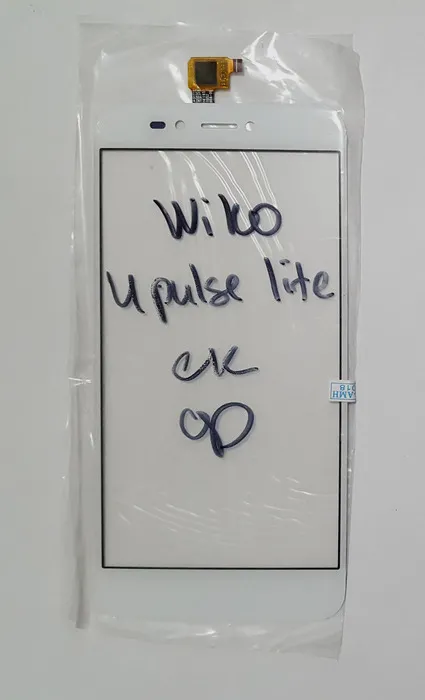 Wiko
u pulse lite
CK
OP
AMH
018